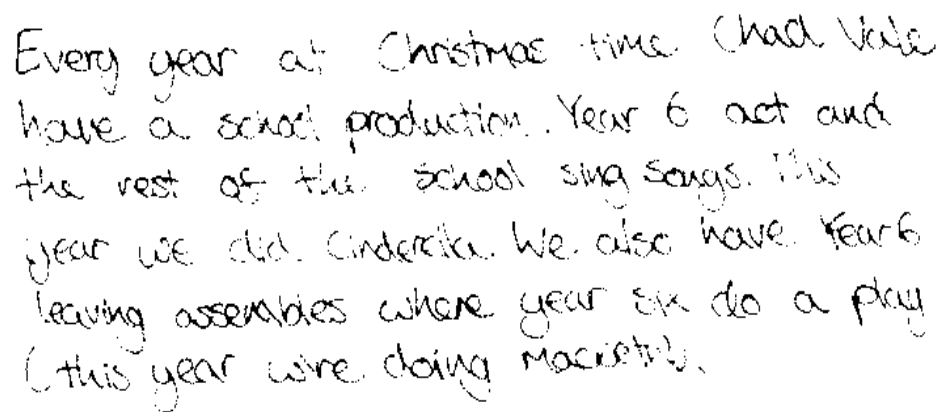 Every year at Christmas time Chad Vale
have a school production. Year 6 act and
the rest of the school sing songs. This
year we did Cinderella. We also have Year 6
leaving assembles where year six do a play
(this year wire doing Macbeth).